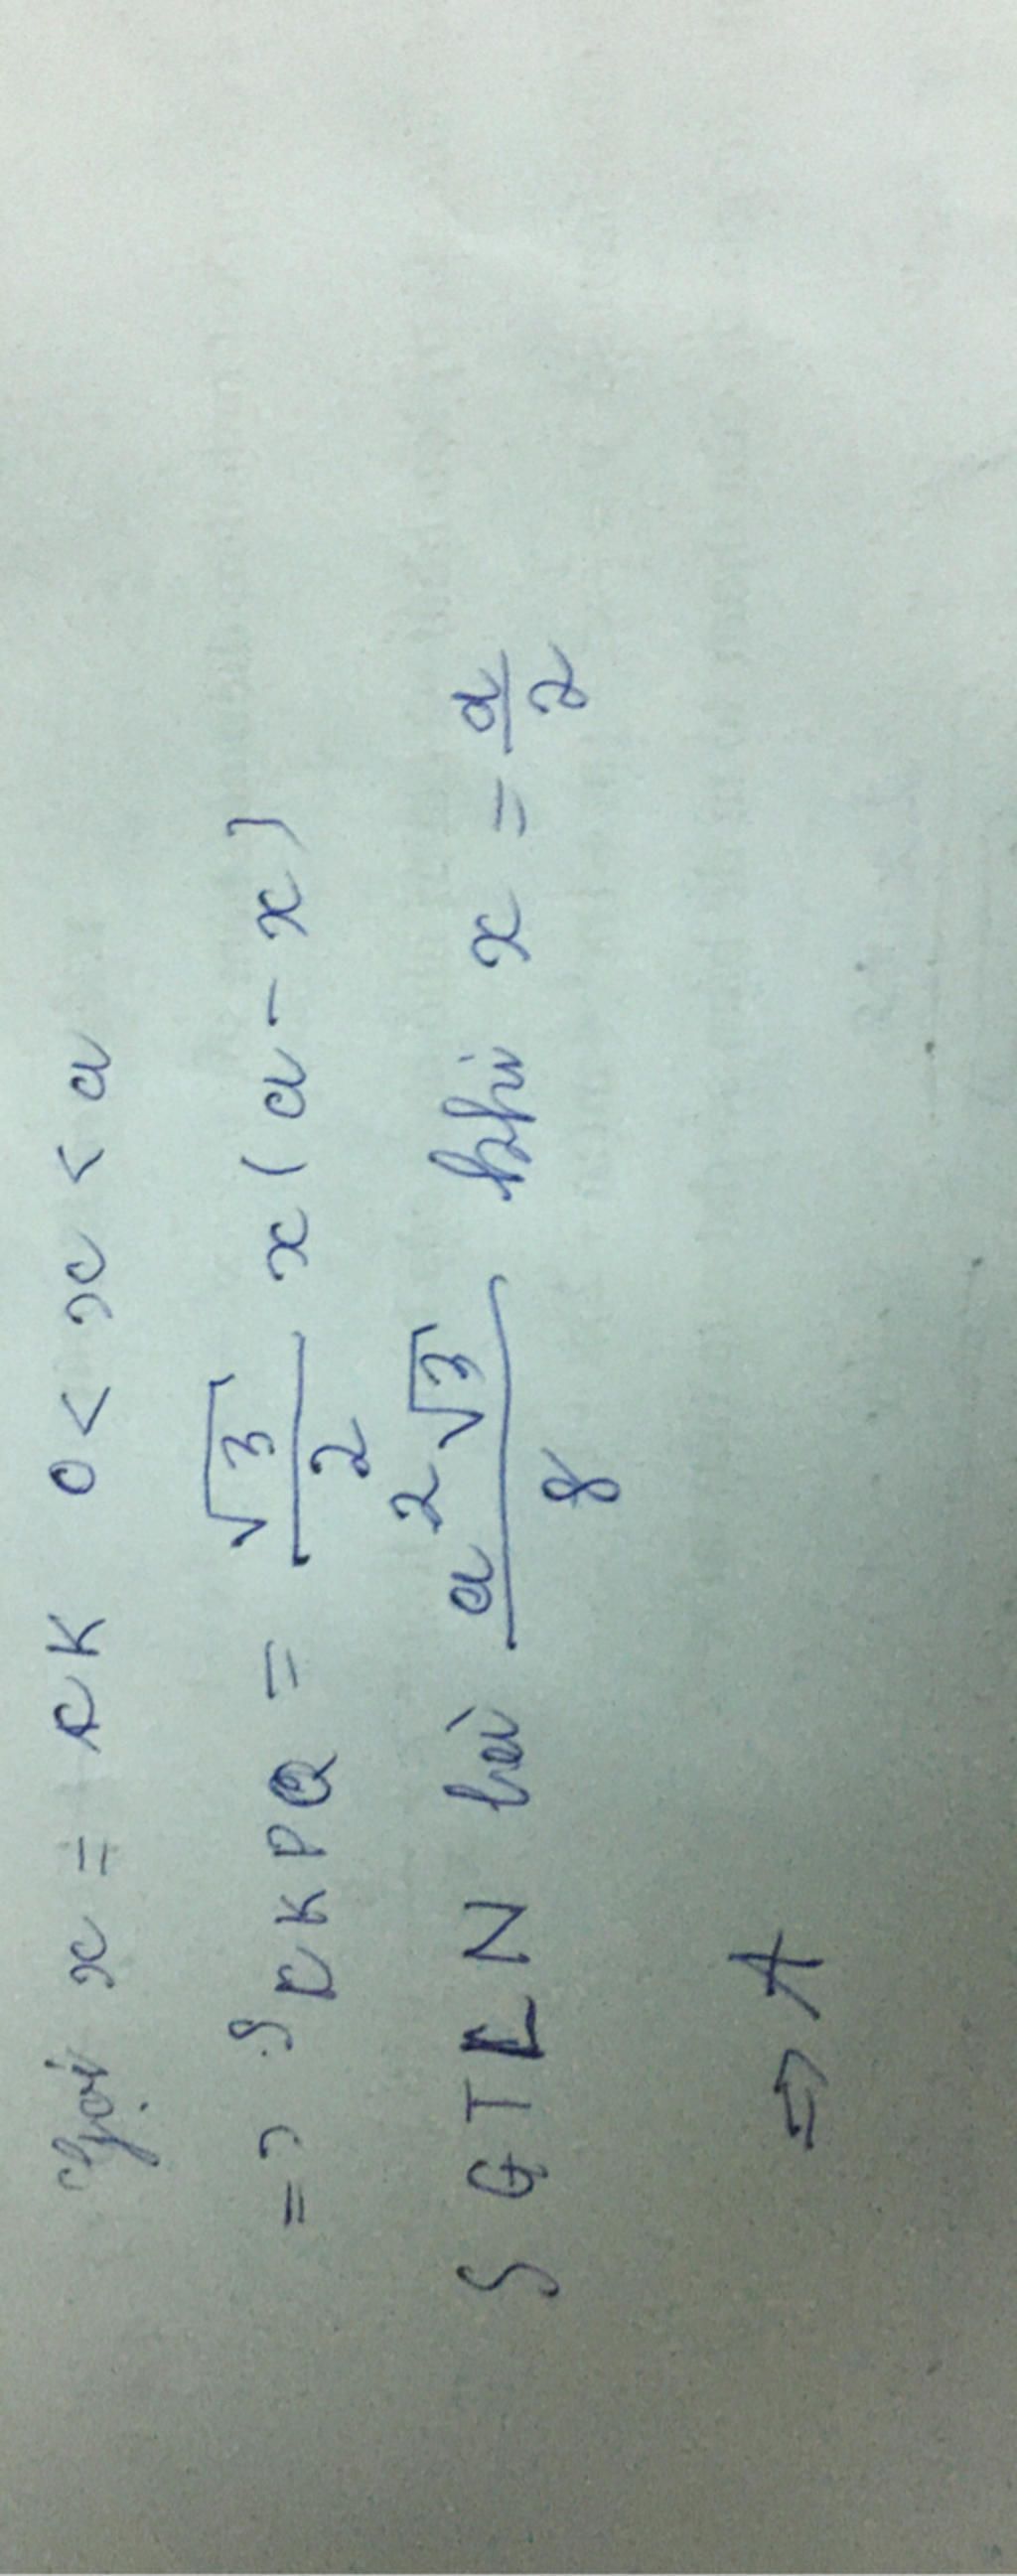 Gọi x = RK 0 < x < a
=> S RKPQ = √3/2 x(a-x)
S GTLN bởi a²√3/8 khi x = a/2
=> A